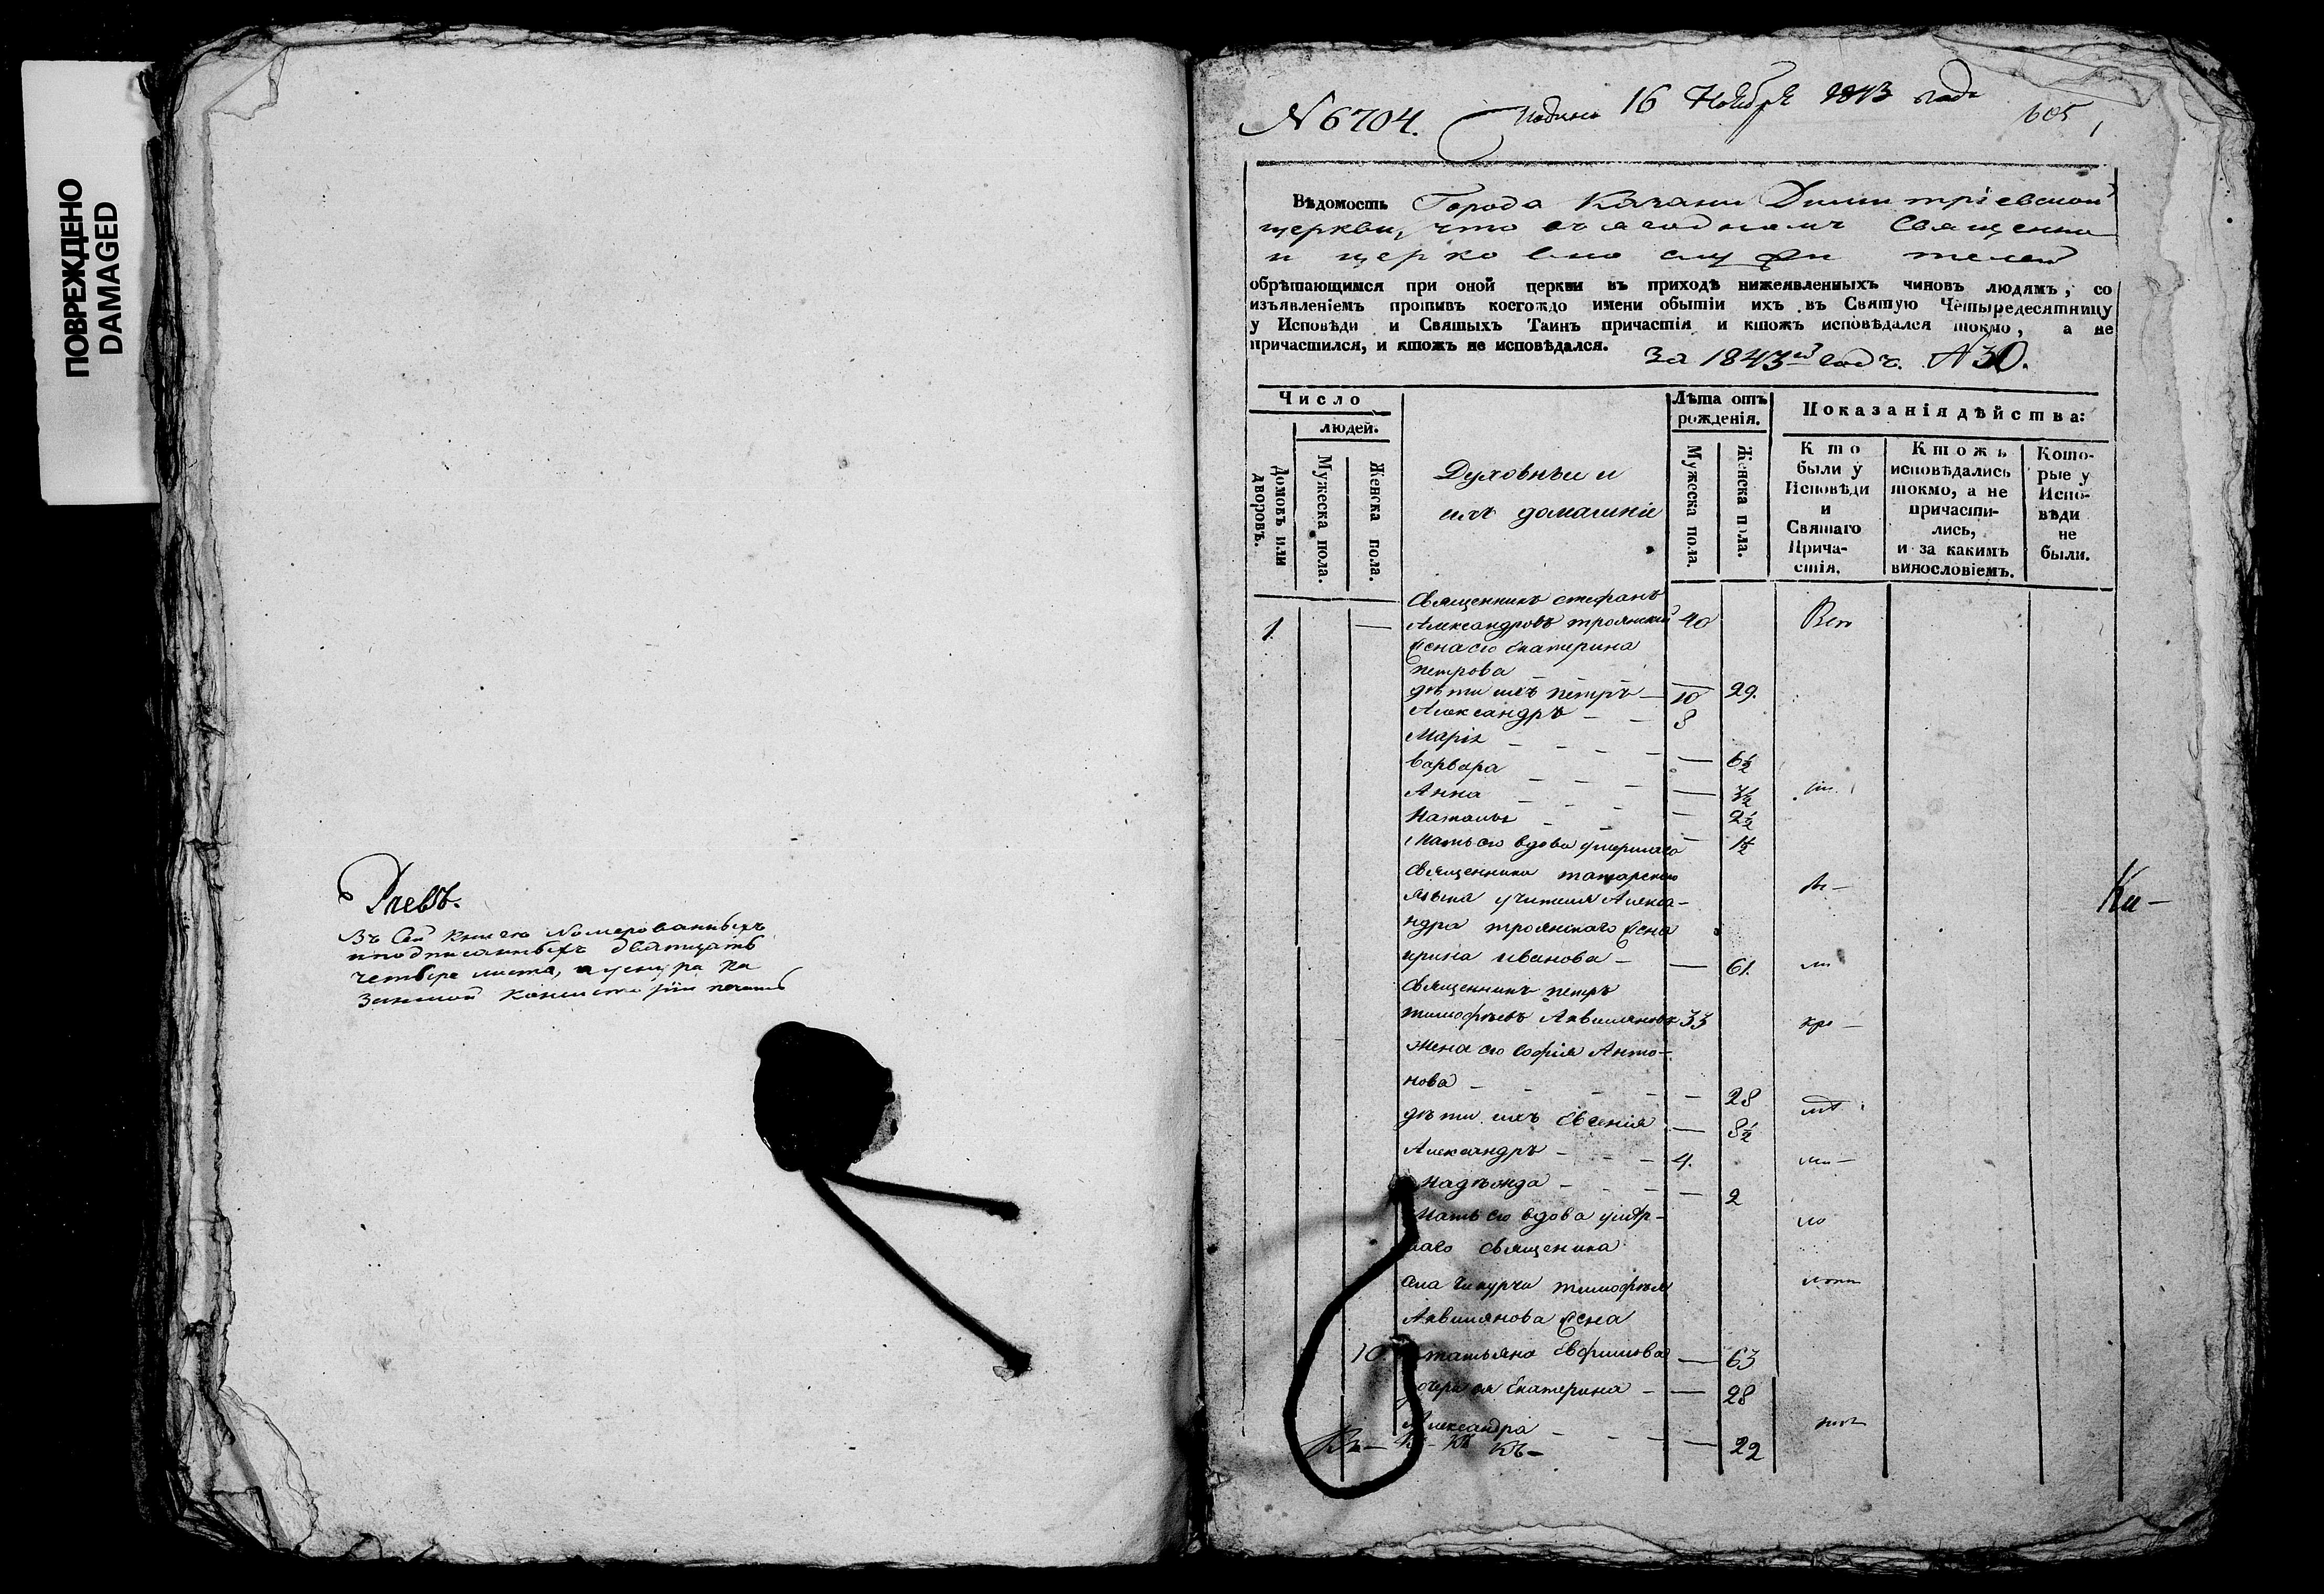 ПОВРЕЖДЕНО
DAMAGED
Въ сей книгѣ номерованныхъ
и подписанныхъ двятцать
четыре листа,
печать
N 6704.
16 Ноября 1843 года
605
Вѣдомость Города Казани Димитріевской
церкви,
и церковно служителей
обрѣтающимся при оной церкви въ приходѣ нижеявленныхъ чиновъ людямъ, со
изъявленіемъ противъ когождо имени обытіи ихъ въ Святую Четыредесятницу
у Исповѣди и Святыхъ Таинъ причастія и ктожъ исповѣдался токмо, а не
причастился, и ктожъ не исповѣдался.
За 1843й годъ. N 30.
Число
людей.
Домовъ или дворовъ.
Мужеска пола.
Женска пола.
Духовные и
ихъ домашніе
Лѣта отъ
рожденія.
Мужеска пола.
Женска пола.
Показанія дѣйства:
Кто
были у
Исповѣди
и
Святаго
Прича-
стія.
Ктожъ
исповѣдались
токмо, а не
причасти-
лись,
и за какимъ
винословіемъ.
Кото-
рые у
Испо-
вѣди
не
были.
Священникъ стефанъ
1. Александровъ троянскій 40
жена его Екатерина
петрова 29.
дѣти ихъ петръ 10
Александръ 8
Марія 6½
Варвара 3½
Анна 2½
Наталья 1½
Мать его вдова умершаго
Священника татарскаго
языка учителя Алекса-
ндра троянскаго жена
ирина иванова 61.
Священникъ петръ
тимофѣевъ Аквиляновъ 33
жена его софія Анто-
нова 28
дѣти ихъ Евгенія 8½
Александръ 4.
Надѣжда 2
Мать его вдова умер-
шаго священика
села Чипурчи тимофѣя
Аквилянова жена
10. татьяна Евфимова 63
дочери ея Екатерина 28
Александра 22